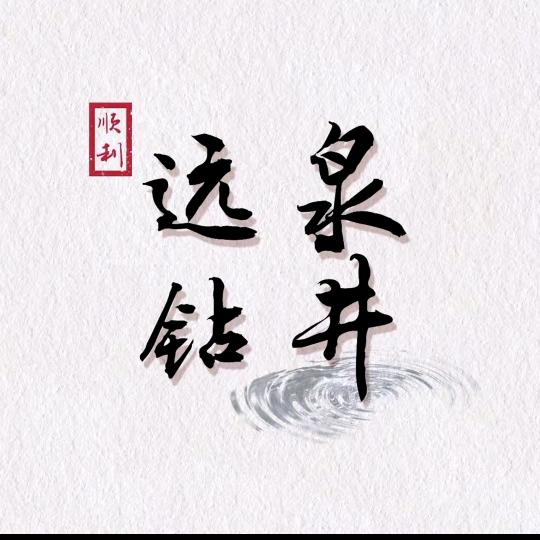 顺利
远泉
钻井